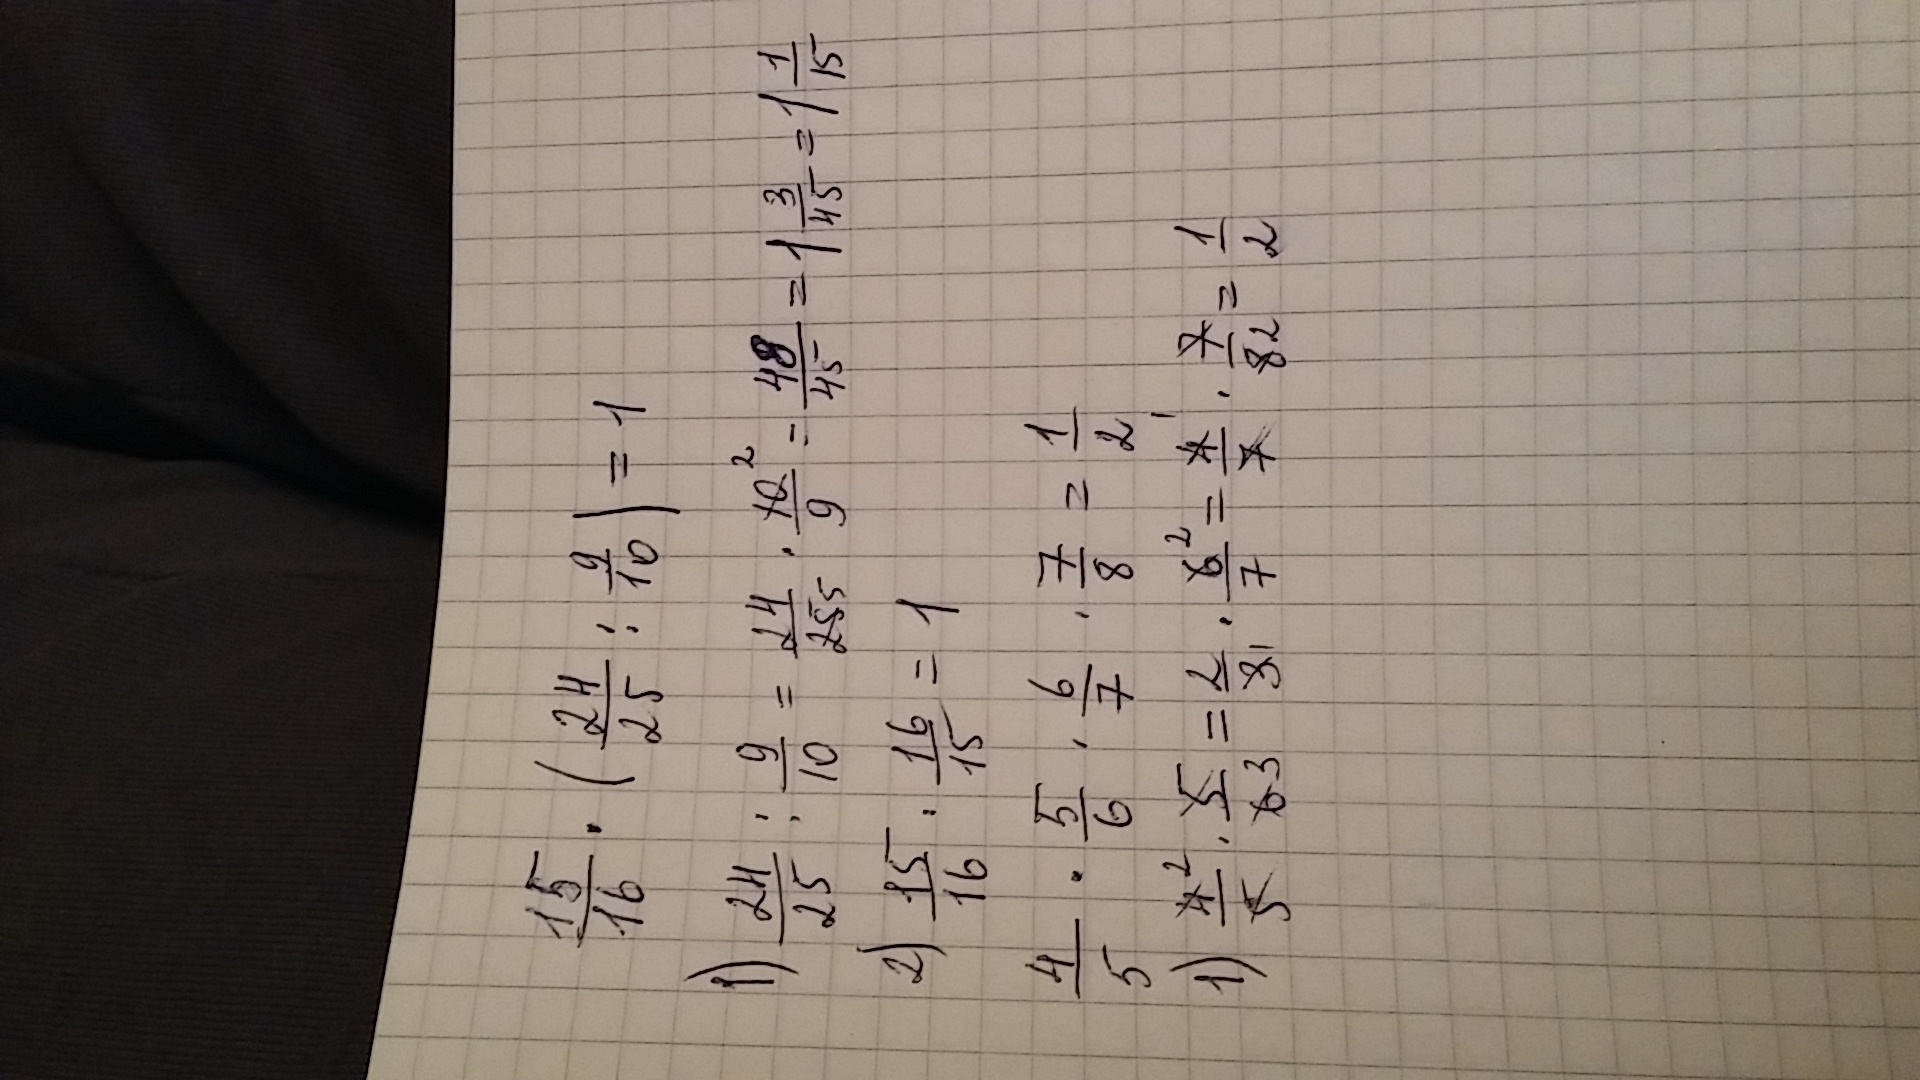 15/16 · (24/25 : 9/10) = 1
1) 24/25 : 9/10 = 24/25 5 · 10 2/9 = 48/45 = 1 3/45 = 1 1/15
2) 15/16 : 16/15 = 1
4/5 · 5/6 · 6/7 · 7/8 = 1/2
1) 4 2/5 · 5/6 3 = 2/3 1 · 6 2/7 = 4 1/7 · 7/8 2 = 1/2